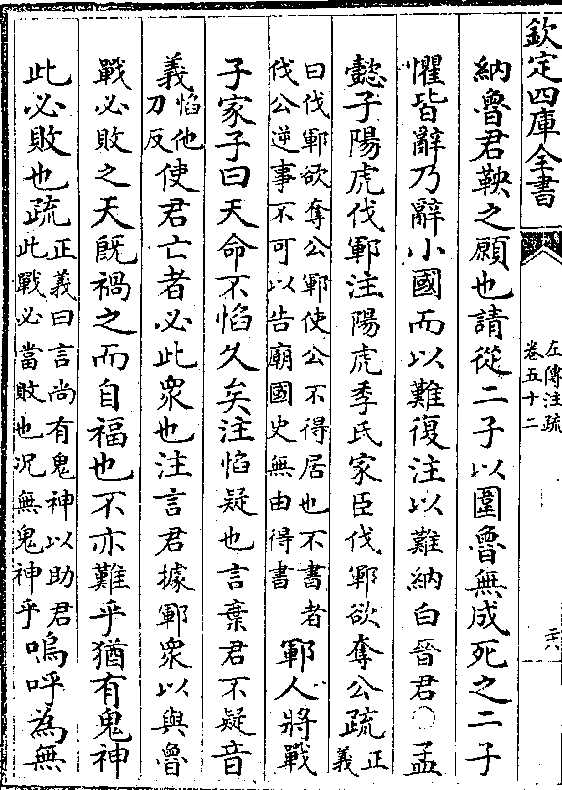 欽定四庫全書
左傳注疏
卷五十二
二六
納魯君鞅之願也請從二子以圍魯無成死之二子
懼皆辭乃辭小國而以難復注以難納白晉君○孟
懿子陽虎伐鄆注陽虎季氏家臣伐鄆欲奪公疏正
義
曰伐鄆欲奪公鄆使公不得居也不書者
伐公逆事不可以告廟國史無由得書
鄆人將戰
子家子曰天命不慆久矣注慆疑也言棄君不疑音
義慆他
刀反
使君亡者必此衆也注言君據鄆衆以與魯
戰必敗之天既禍之而自福也不亦難乎猶有鬼神
此必敗也疏正義曰言尚有鬼神以助君
此戰必當敗也况無鬼神乎
嗚呼為無